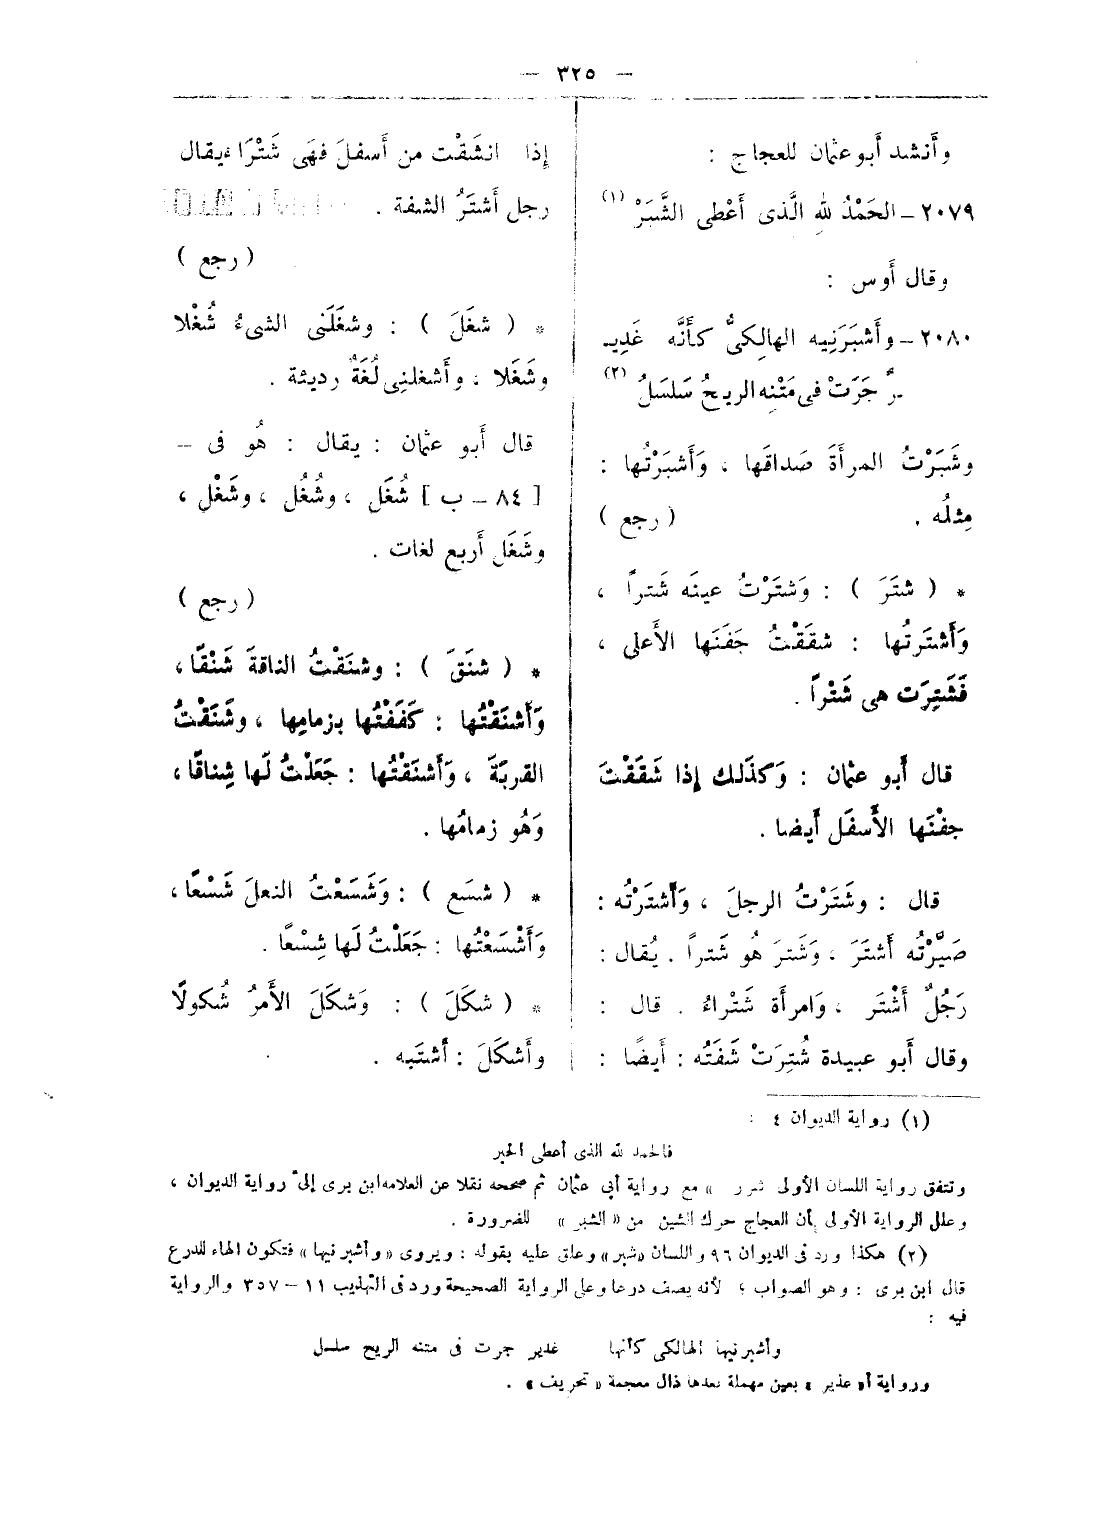 — ٣٢٥ —
وأَنشد أَبو عثمان للعجاج :
٢٠٧٩ – الحَمْدُ للهِ الَّذى أَعْطى الشَّبَرْ (١)
وقال أَوس :
٢٠٨٠ – وأَشبَرَنِيه الهالِكىُّ كأَنَّه غَدِيـ
ـرٌ جَرَتْ فى مَتْنِه الريحُ سَلسَلُ (٢)
وشَبَرْتُ المرأَةَ صَداقَها ، وَأَشبَرْتُها :
مِثلُه . ( رجع )
* ( شتَرَ ) : وَشتَرْتُ عينَه شَتراً ،
وَأَشتَرتُها : شقَقْتُ جَفنَها الأَعلى ،
فَشَتِرَت هى شَتْراً .
قال أَبو عثمان : وَكذَلك إذا شَقَقْتَ
جفْنَها الأَسفَل أَيضا .
قال : وشَتَرْتُ الرجلَ ، وَأَشتَرْتُه :
صَيَّرْتُه أَشتَرَ ، وَشَتَرَ هُو شَتراً . يُقال :
رَجُلٌ أَشْتَر ، وَامرأَة شَتْراءُ . قال :
وقال أَبو عبيدة شُتِرَتْ شَفَتُه : أَيضًا :
إِذا انشَقَّت من أَسفلَ فهَى شَتْرَاء يقال
رجل أَشتَرُ الشفة .
( رجع )
* ( شغَلَ ) : وشغَلَنى الشىءُ شُغْلا
وشَغَلا ، وأَشغلنِى لُغَةٌ رديئة .
قال أَبو عثمان : يقال : هُو فى –
[ ٨٤ – ب ] شُغَل ، وشُغُل ، وشَغْل ،
وشَغَل أَربع لغات .
( رجع )
* ( شنَقَ ) : وشنَقْتُ الناقةَ شَنْقًا ،
وَأَشنَقْتُها : كَفَفْتُها بزمامِها ، وشَنَقْتُ
القربَةَ ، وَأَشنَقْتُها : جَعَلْتُ لَها شِناقًا ،
وَهُو زمامُها .
* ( شسَع ) : وَشَسَعْتُ النعلَ شَسْعًا ،
وَأَشْسَعْتُها : جَعَلْتُ لَها شِسْعًا .
* ( شكَلَ ) : وَشكَلَ الأَمرُ شُكولًا
وأَشكَلَ : أشتَبه .
(١) رواية الديوان ٤ :
فالحمد لله الذى أعطى الحبر
وتتفق رواية اللسان الأولى شبر » مع رواية أبى عثمان ثم صححه نقلا عن العلامه ابن برى إلى رواية الديوان ،
وعلل الرواية الأولى بأن العجاج حرك الشين من « الشبر » للضرورة .
(٢) هكذا ورد فى الديوان ٩٦ واللسان «شبر» وعلق عليه بقوله : ويروى « وأشبرنيها » فتكون الهاء للدرع
قال ابن برى : وهو الصواب ؛ لأنه يصف درعا وعلى الرواية الصحيحة ورد فى التهذيب ١١ – ٣٥٧ والرواية
فيه :
وأشبرنيها الهالكى كأنها غدير جرت فى متنه الريح سلسل
ورواية أ« عذير » بعين مهملة بعدها ذال معجمة « تحريف » .